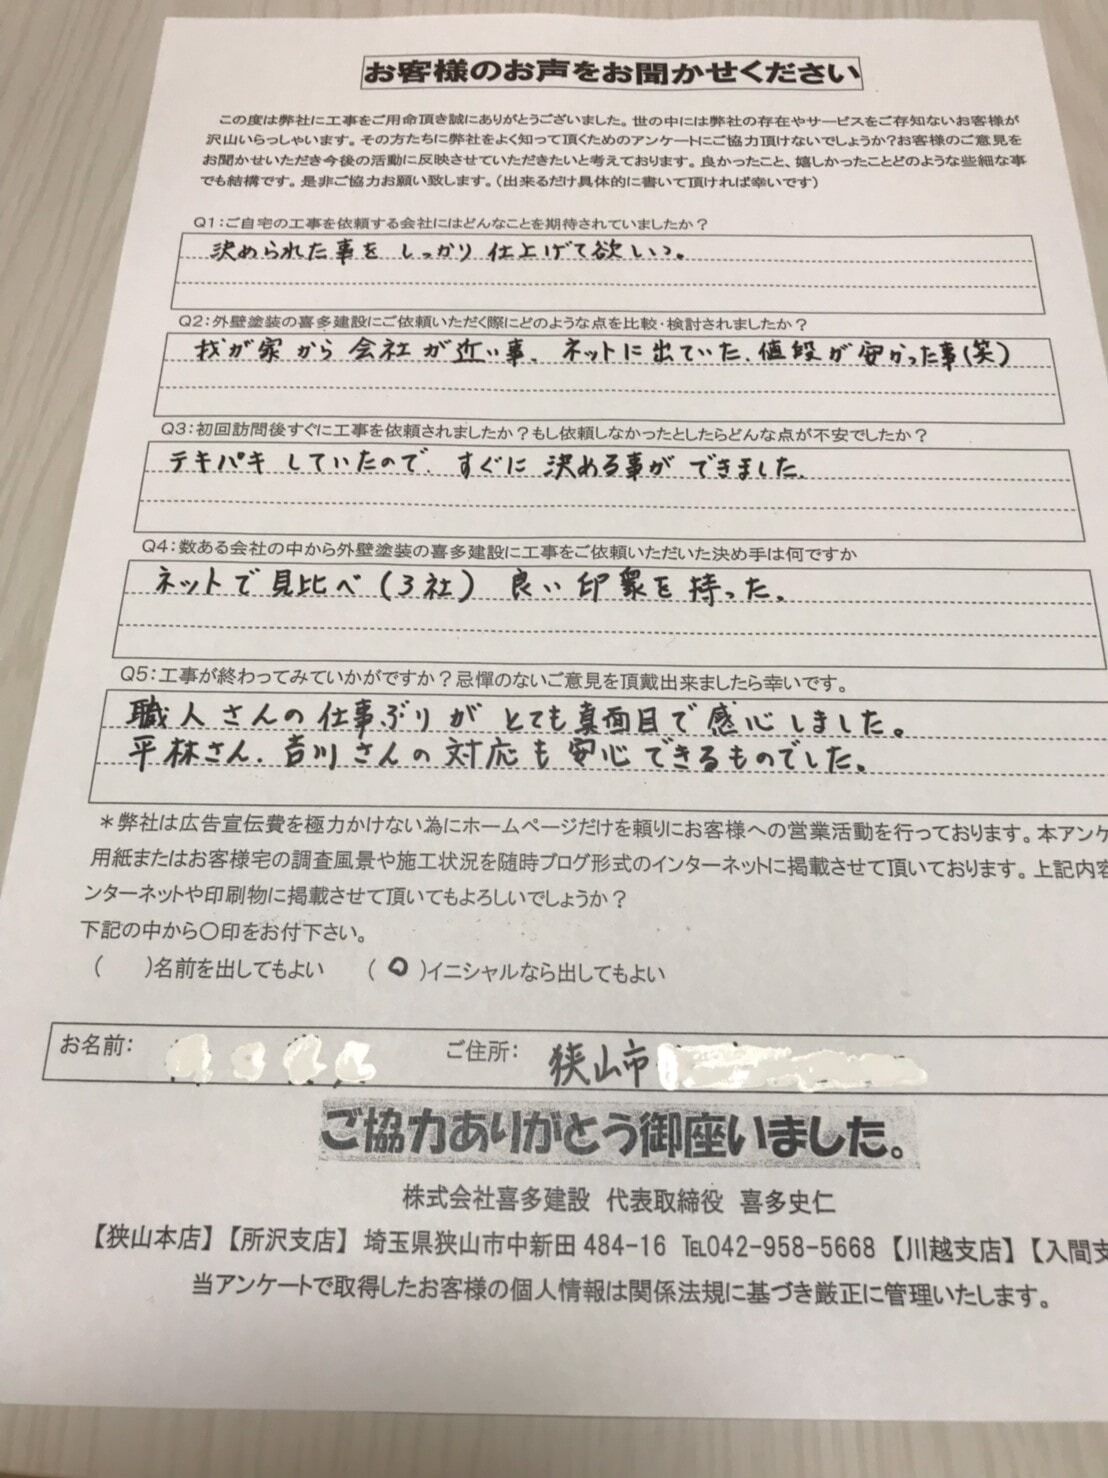 お客様のお声をお聞かせください
この度は弊社に工事をご用命頂き誠にありがとうございました。世の中には弊社の存在やサービスをご存知ないお客様が
沢山いらっしゃいます。その方たちに弊社をよく知って頂くためのアンケートにご協力頂けないでしょうか?お客様のご意見を
お聞かせいただき今後の活動に反映させていただきたいと考えております。良かったこと、嬉しかったことどのような些細な事
でも結構です。是非ご協力お願い致します。(出来るだけ具体的に書いて頂ければ幸いです)
Q1:ご自宅の工事を依頼する会社にはどんなことを期待されていましたか?
決められた事をしっかり仕上げて欲しい。
Q2:外壁塗装の喜多建設にご依頼いただく際にどのような点を比較・検討されましたか?
我が家から会社が近い事、ネットに出ていた、値段が安かった事(笑)
Q3:初回訪問後すぐに工事を依頼されましたか?もし依頼しなかったとしたらどんな点が不安でしたか?
テキパキしていたので、すぐに決める事ができました。
Q4:数ある会社の中から外壁塗装の喜多建設に工事をご依頼いただいた決め手は何ですか
ネットで見比べ(3社)良い印象を持った。
Q5:工事が終わってみていかがですか?忌憚のないご意見を頂戴出来ましたら幸いです。
職人さんの仕事ぶりがとても真面目で感心しました。
平林さん、吉川さんの対応も安心できるものでした。
*弊社は広告宣伝費を極力かけない為にホームページだけを頼りにお客様への営業活動を行っております。本アンケ
用紙またはお客様宅の調査風景や施工状況を随時ブログ形式のインターネットに掲載させて頂いております。上記内容
ンターネットや印刷物に掲載させて頂いてもよろしいでしょうか?
下記の中から〇印をお付下さい。
( )名前を出してもよい (〇)イニシャルなら出してもよい
お名前: ご住所: 狭山市
ご協力ありがとう御座いました。
株式会社喜多建設 代表取締役 喜多史仁
【狭山本店】【所沢支店】埼玉県狭山市中新田484-16 ℡042-958-5668【川越支店】【入間支
当アンケートで取得したお客様の個人情報は関係法規に基づき厳正に管理いたします。